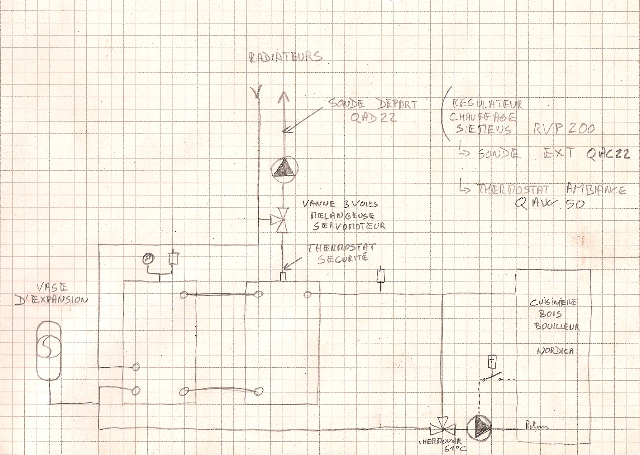 RADIATEURS
SONDE DEPART
QAD 22
REGULATEUR
CHAUFFAGE
SIEMENS RVP 200
SONDE EXT QAC 22
THERMOSTAT AMBIANCE
QAW 50
VANNE 3 VOIES
MELANGEUSE
SERVOMOTEUR
THERMOSTAT
SECURITE
VASE
D'EXPANSION
CUISINIERE
BOIS
BOUILLEUR
NORDICA
Retour
61°C